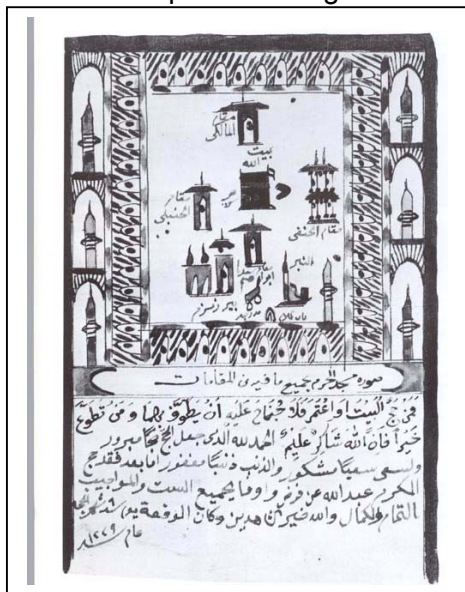 مقام
المالكي
بيت
الله
مقام
الحنبلي
مقام الحنفي
المنبر
بير زمزم
صورة مسجد الحرم بجميع ما فيه من المقامات
فمن حج البيت او اعتمر فلا جناح عليه أن يطوف بهما ومن تطوع
خيرا فان الله شاكر عليم الحمد لله الذي جعل الحج حجا مبرور
وسعى سعيا مشكور والذنب ذنبا مغفور اما بعد فقد حج
المكرم عبد الله عن فرض واوفا بجميع السنت والمواجيب
التمام والكمال والله خير وكان الوقفة يوم
عام ١٢٧٩ سنه